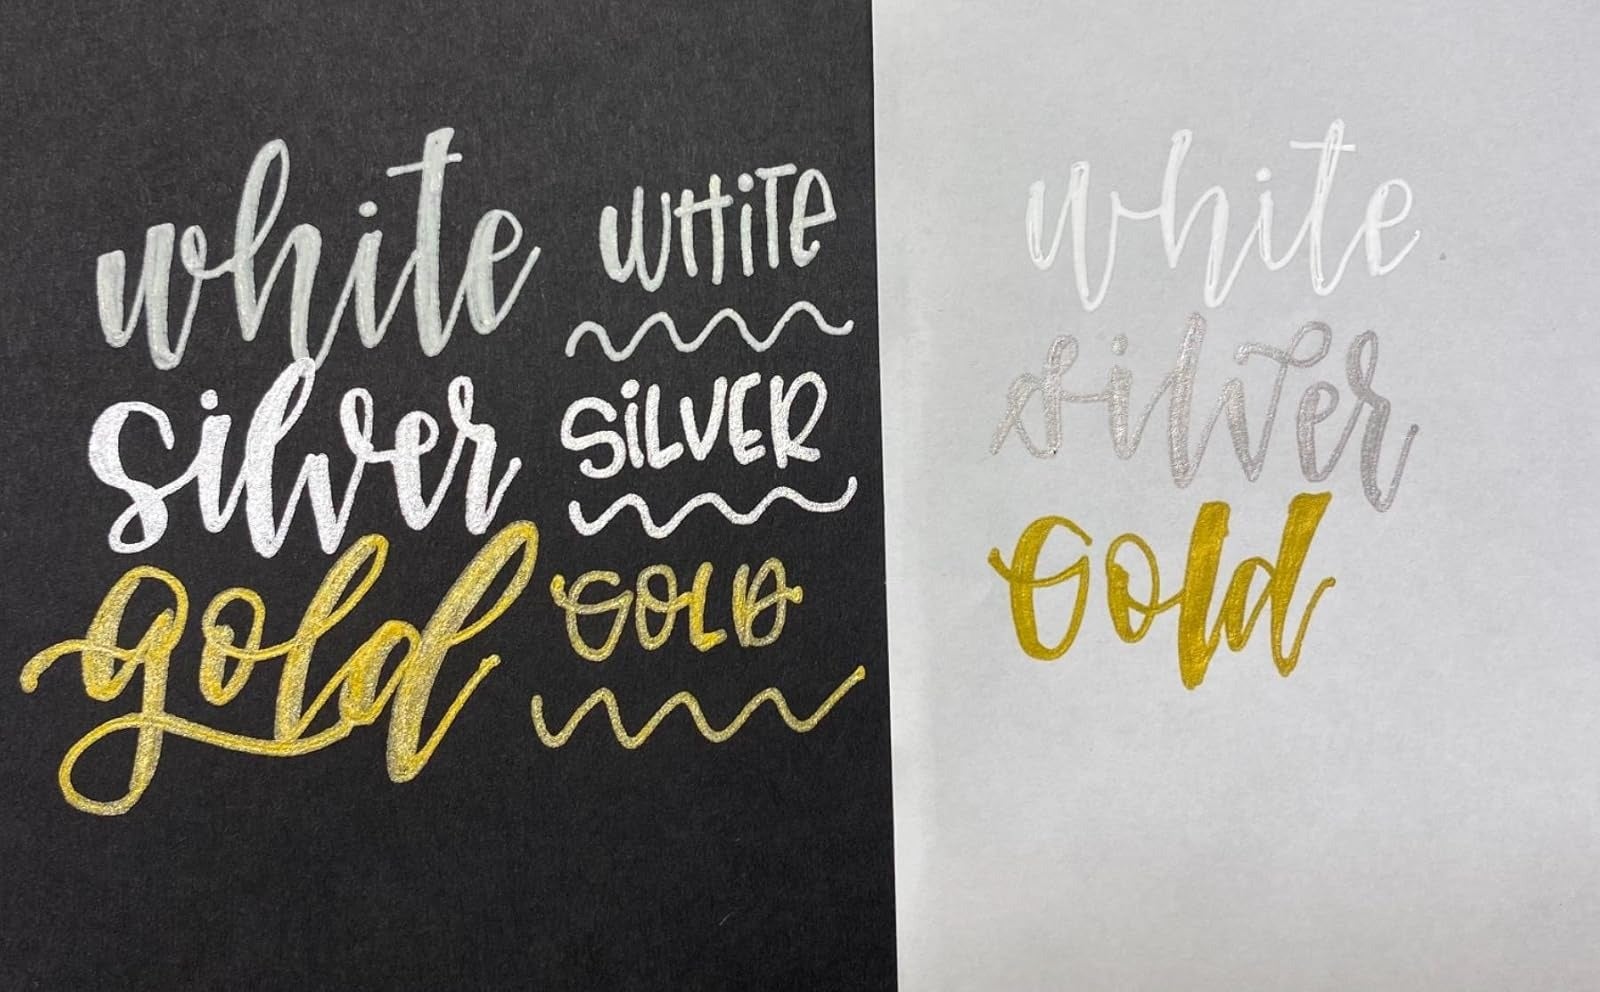 white
silver
gold
WHiTE
SiLVER
GOLD
white
silver
Gold